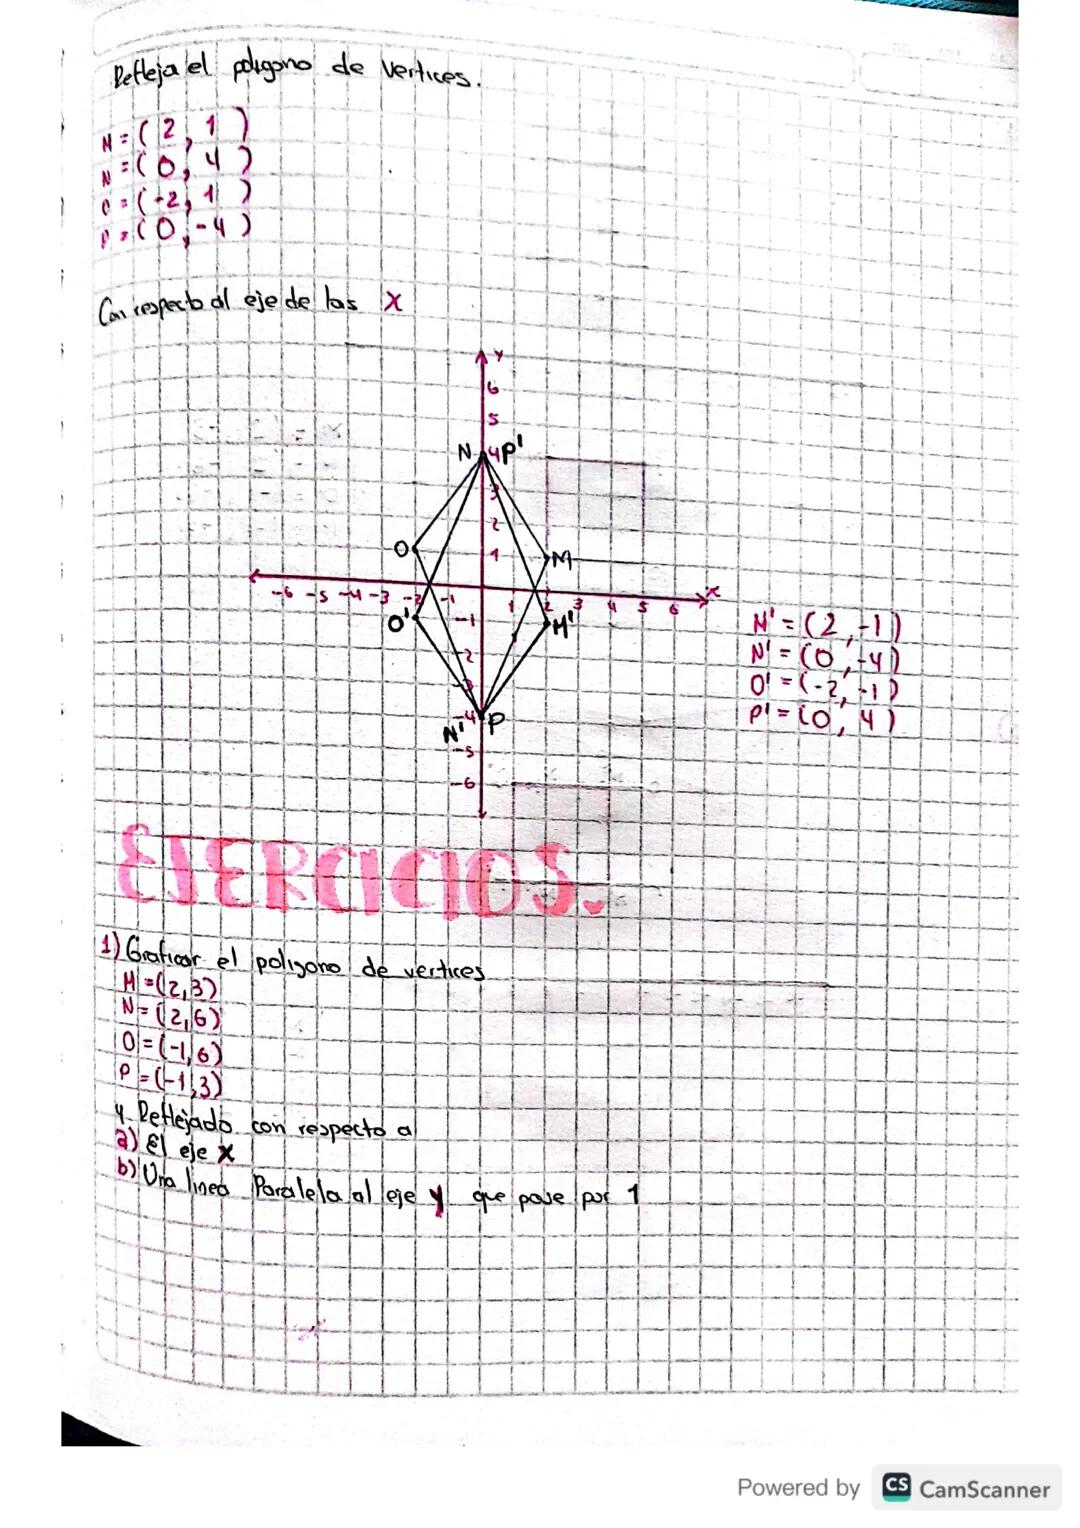 Refleja el poligono de vertices.
M = ( 2, 1 )
N = ( 0, 4 )
O = ( -2, 1 )
P = ( 0, -4 )
Con respecto al eje de las X
Y
6
5
N 4 P'
3
2
O 1 M
-6 -5 -4 -3 -2 -1 1 2 3 4 5 6 X
O' -1 M'
-2
-3
-4 P
N'
-5
-6
M' = (2, -1)
N' = (0, -4)
O' = (-2, -1)
P' = (0, 4)
EJERCICIOS.
1) Graficar el poligono de vertices
M = (2,3)
N = (2,6)
O = (-1,6)
P = (-1,3)
y Reflejado con respecto a
a) El eje X
b) Una linea Paralela al eje y que pase por 1
Powered by CS CamScanner